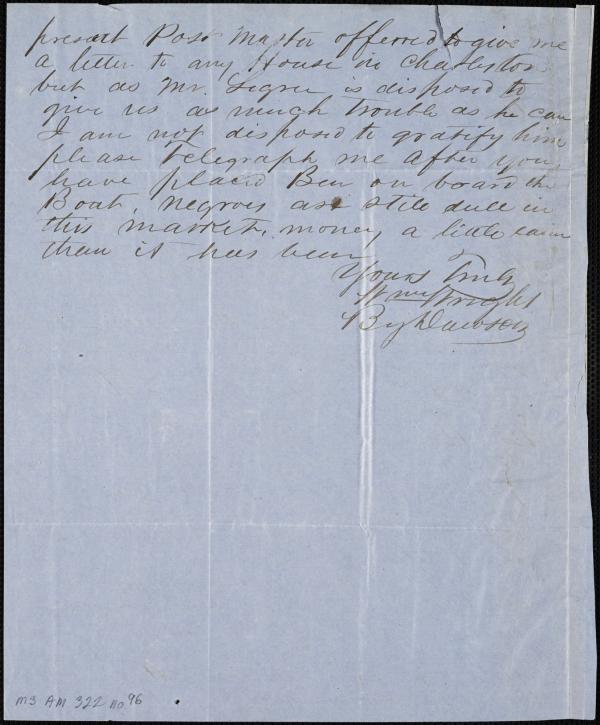 present Post Master offerred to give me
a letter to any House in Charleston
but as Mr. Legree is disposed to
give us as much trouble as he can
I am not disposed to gratify him
please Telegraph me after you
have placed Ben on board the
Boat, negroes are still dull in
this market, money a little easier
than it has been
Yours Truly
Wm Wright
By Dawson
MS AM 322 no 96